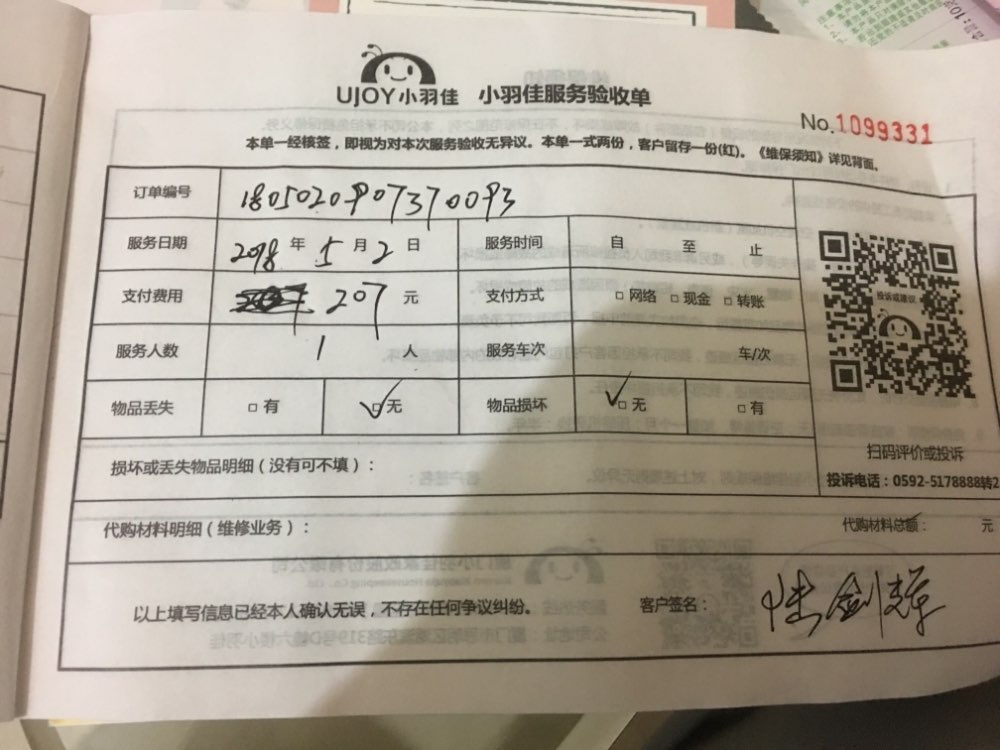 UJOY小羽佳 小羽佳服务验收单
No.1099331
本单一经核签，即视为对本次服务验收无异议。本单一式两份，客户留存一份(红)。《维保须知》详见背面。
订单编号 1805020907370093
服务日期 2018 年 5 月 2 日 服务时间 自 至 止
支付费用 207 元 支付方式 □ 网络 □ 现金 □ 转账
投诉或建议
服务人数 1 人 服务车次 车/次
物品丢失 □ 有 ✓□ 无 物品损坏 ✓□ 无 □ 有
扫码评价或投诉
损坏或丢失物品明细（没有可不填）：
投诉电话：0592-5178888转2
代购材料明细（维修业务）： 代购材料总额： 元
以上填写信息已经本人确认无误，不存在任何争议纠纷。 客户签名：